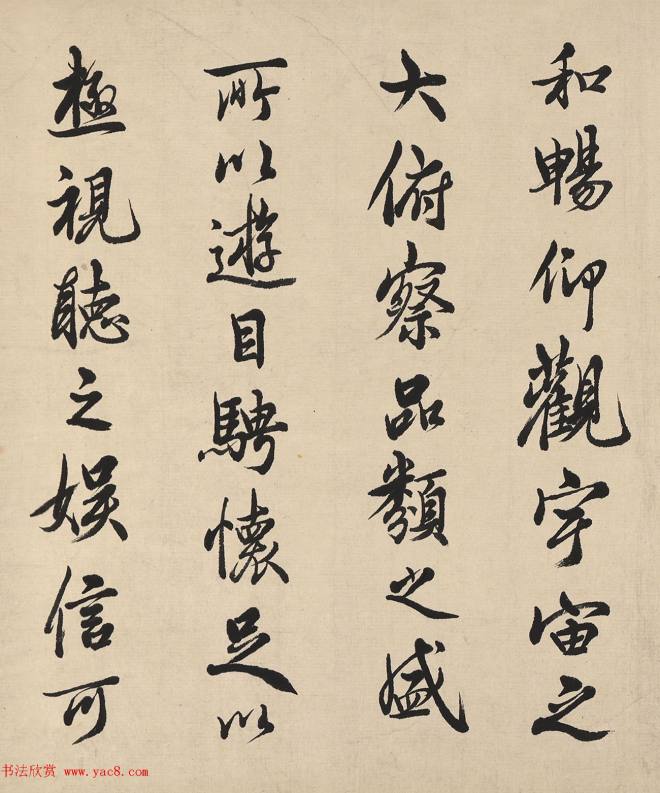 和暢仰觀宇宙之
大俯察品類之盛
所以遊目騁懷足以
極視聽之娛信可
书法欣赏 www.yac8.com